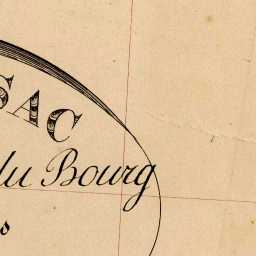 SAC
du Bourg
s